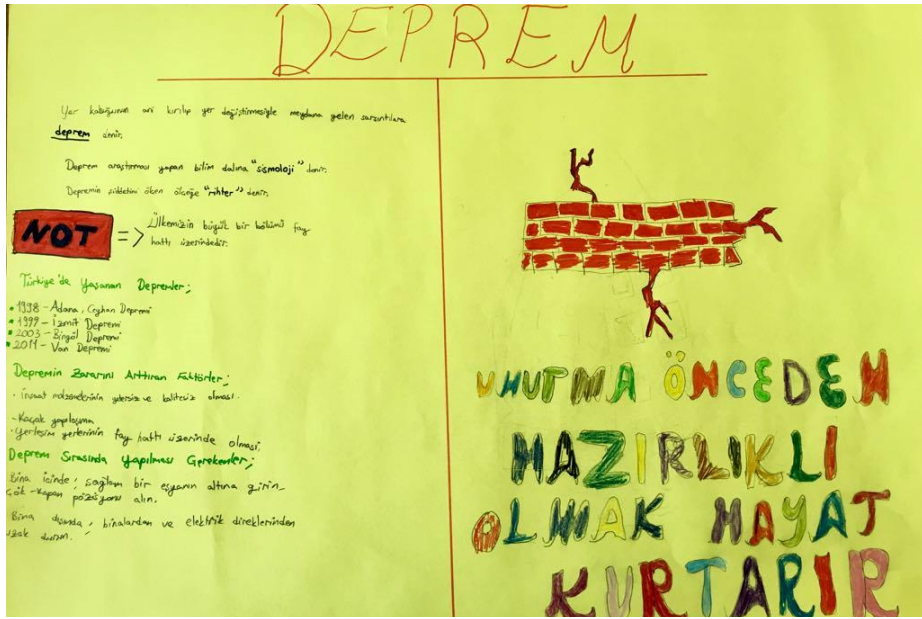 DEPREM
Yer kabuğunun ani kırılıp yer değiştirmesiyle meydana gelen sarsıntılara
deprem denir.
Deprem araştırması yapan bilim dalına "sismoloji" denir.
Depremin şiddetini ölçen ölçeğe "rihter" denir.
NOT => Ülkemizin büyük bir bölümü fay
hattı üzerindedir.
Türkiye'de Yaşanan Depremler;
1998 - Adana, Ceyhan Depremi
1999 - İzmit Depremi
2003 - Bingöl Depremi
2011 - Van Depremi
Depremin Zararını Arttıran Faktörler;
- İnşaat malzemelerinin yetersiz ve kalitesiz olması.
- Kaçak yapılaşma
- Yerleşim yerlerinin fay hattı üzerinde olması.
Deprem Sırasında Yapılması Gerekenler;
Bina içinde; sağlam bir eşyanın altına girin.
Çök-Kapan pozisyonu alın.
Bina dışında; binalardan ve elektrik direklerinden
uzak durun.
UNUTMA ÖNCEDEN
HAZIRLIKLI
OLMAK HAYAT
KURTARIR